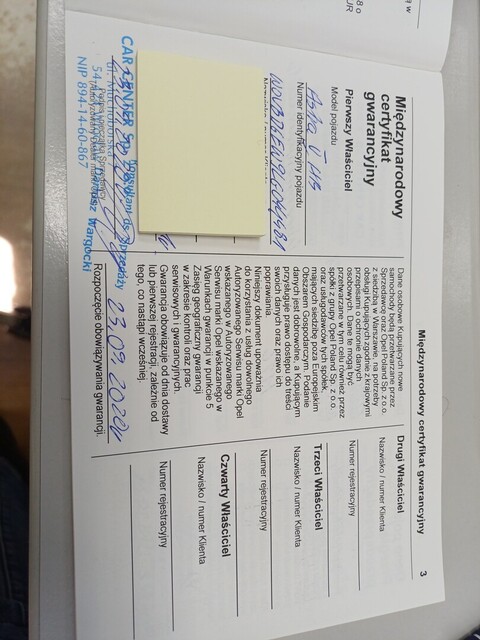 Międzynarodowy certyfikat gwarancyjny
3
Międzynarodowy
certyfikat
gwarancyjny
Pierwszy Właściciel
Model pojazdu
Astra V HB
Numer identyfikacyjny pojazdu
CAR CENTER Sp.
NIP 894-14-60-867
Wargocki
23.09.2020
Rozpoczęcie obowiązywania gwarancji.
Dane osobowe Kupujących nowe
samochody będą przetwarzane przez
Sprzedawcę oraz Opel Poland Sp. z o.o.
z siedzibą w Warszawie, na potrzeby
obsługi Kupujących zgodnie z krajowymi
przepisami o ochronie danych
osobowych. Dane te mogą być
przetwarzane w tym celu również przez
spółki z grupy Opel Poland Sp. z o.o.
oraz usługodawców tych spółek,
mających siedzibę poza Europejskim
Obszarem Gospodarczym. Podanie
danych jest dobrowolne, a Kupującym
przysługuje prawo dostępu do treści
swoich danych oraz prawo ich
poprawiania.
Niniejszy dokument upoważnia
do korzystania z usług dowolnego
Autoryzowanego Serwisu marki Opel
wskazanego w Autoryzowanego
Serwisu marki Opel wskazanego w
Warunkach gwarancji w punkcie 5
Zasięg geograficzny gwarancji
w zakresie kontroli oraz prac
serwisowych i gwarancyjnych.
Gwarancja obowiązuje od dnia dostawy
lub pierwszej rejestracji, zależnie od
tego, co nastąpi wcześniej.
Drugi Właściciel
Nazwisko / numer Klienta
Numer rejestracyjny
Trzeci Właściciel
Nazwisko / numer Klienta
Numer rejestracyjny
Czwarty Właściciel
Nazwisko / numer Klienta
Numer rejestracyjny